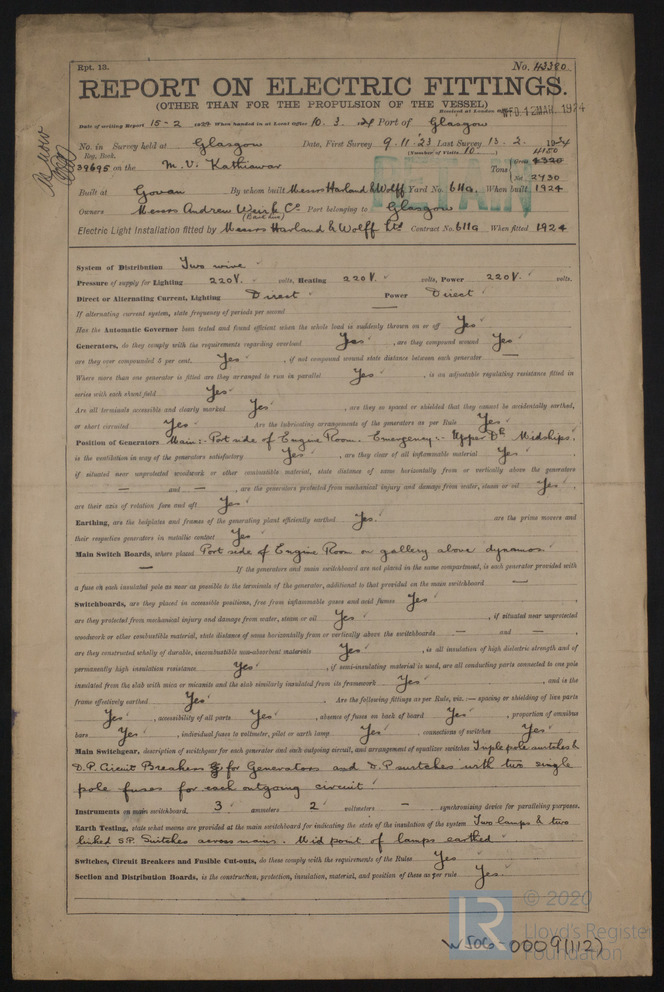 Rpt. 13.
No. 43380
REPORT ON ELECTRIC FITTINGS.
(OTHER THAN FOR THE PROPULSION OF THE VESSEL)
Received at London Office WED. 12 MAR. 1924
Date of writing Report 15-2 1924 When handed in at Local Office 10. 3. 1924 Port of Glasgow
No. in Survey held at Glasgow Date, First Survey 9.11.23 Last Survey 13. 2. 1924
Reg. Book. (Number of Visits 10.)
39695 on the M.V. Kathiawar Tons Gross 4320 4150 Net 2730
Built at Govan By whom built Messrs Harland & Wolff Yard No. 611G. When built 1924
Owners Messrs Andrew Weir & Co (Bank Line) Port belonging to Glasgow
Electric Light Installation fitted by Messrs Harland & Wolff Ltd Contract No. 611G When fitted 1924
RETAIN
System of Distribution Two wire
Pressure of supply for Lighting 220V. volts, Heating 220V. volts, Power 220V. volts.
Direct or Alternating Current, Lighting Direct Power Direct
If alternating current system, state frequency of periods per second —
Has the Automatic Governor been tested and found efficient when the whole load is suddenly thrown on or off Yes
Generators, do they comply with the requirements regarding overload Yes, are they compound wound Yes
are they over compounded 5 per cent. Yes, if not compound wound state distance between each generator —
Where more than one generator is fitted are they arranged to run in parallel Yes, is an adjustable regulating resistance fitted in
series with each shunt field Yes
Are all terminals accessible and clearly marked Yes, are they so spaced or shielded that they cannot be accidentally earthed,
or short circuited Yes Are the lubricating arrangements of the generators as per Rule Yes
Position of Generators Main:- Port side of Engine Room. Emergency:- Upper Dk Midships.
is the ventilation in way of the generators satisfactory Yes, are they clear of all inflammable material Yes,
if situated near unprotected woodwork or other combustible material, state distance of same horizontally from or vertically above the generators
— and —, are the generators protected from mechanical injury and damage from water, steam or oil Yes,
are their axis of rotation fore and aft Yes
Earthing, are the bedplates and frames of the generating plant efficiently earthed Yes. are the prime movers and
their respective generators in metallic contact Yes
Main Switch Boards, where placed Port side of Engine Room on gallery above dynamos.
— If the generators and main switchboard are not placed in the same compartment, is each generator provided with
a fuse on each insulated pole as near as possible to the terminals of the generator, additional to that provided on the main switchboard —
Switchboards, are they placed in accessible positions, free from inflammable gases and acid fumes Yes,
are they protected from mechanical injury and damage from water, steam or oil Yes, if situated near unprotected
woodwork or other combustible material, state distance of same horizontally from or vertically above the switchboards — and —,
are they constructed wholly of durable, incombustible non-absorbent materials Yes, is all insulation of high dielectric strength and of
permanently high insulation resistance Yes, if semi-insulating material is used, are all conducting parts connected to one pole
insulated from the slab with mica or micanite and the slab similarly insulated from its framework Yes, and is the
frame effectively earthed Yes. Are the following fittings as per Rule, viz.:— spacing or shielding of live parts
Yes, accessibility of all parts Yes, absence of fuses on back of board Yes, proportion of omnibus
bars Yes, individual fuses to voltmeter, pilot or earth lamp Yes, connections of switches Yes
Main Switchgear, description of switchgear for each generator and each outgoing circuit, and arrangement of equalizer switches Triple pole switches &
D.P. Circuit Breakers for Generators and D.P switches with two single
pole fuses for each outgoing circuit
Instruments on main switchboard, 3 ammeters 2 voltmeters — synchronizing device for paralleling purposes.
Earth Testing, state what means are provided at the main switchboard for indicating the state of the insulation of the system Two lamps & two
linked S.P. Switches across mains. Mid point of lamps earthed
Switches, Circuit Breakers and Fusible Cut-outs, do these comply with the requirements of the Rules Yes
Section and Distribution Boards, is the construction, protection, insulation, material, and position of these as per rule Yes.
LR
© 2020
Lloyd's Register
Foundation
W506-0009(1/2)